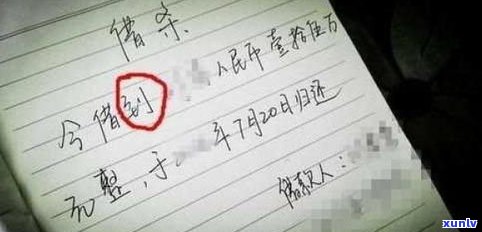 借条
今借到 人民币壹拾伍万
元整，于 年7月20日归还
借款人：
xunlv